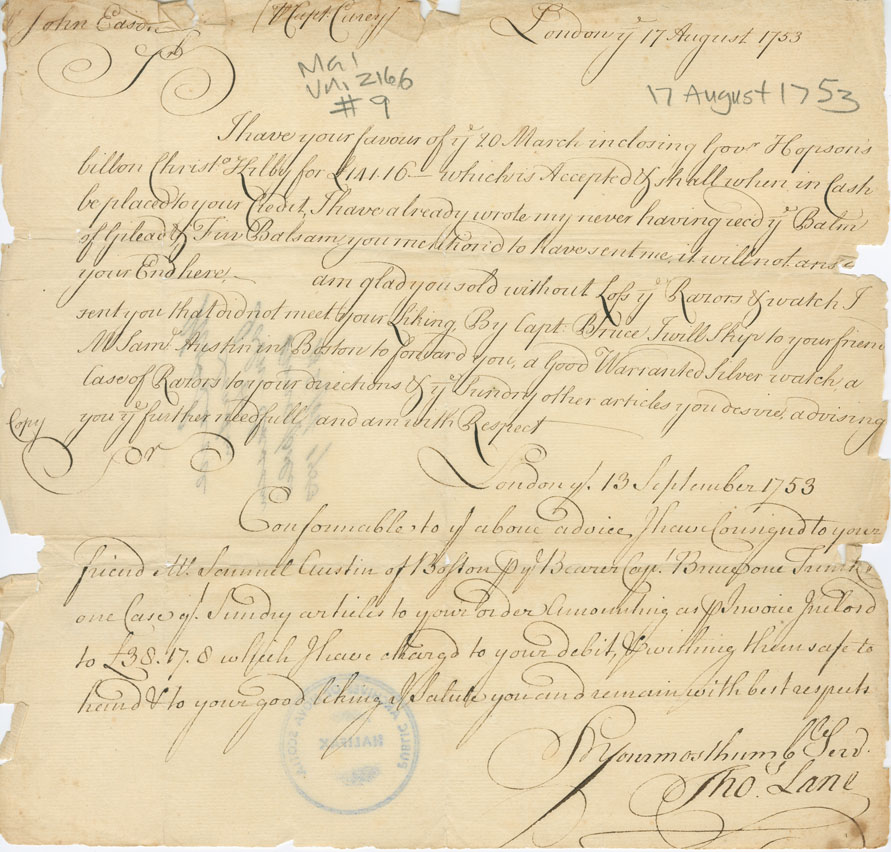 John Eason (Capt. Carey) London ye 17 August 1753
Sr
MG 1
Vol. 2166
#9
17 August 1753
I have your favour of ye 20 March inclosing Govr Hopson's
bill on Christo Kilby for £141.16 — which is Accepted & shall when in Cash
be placed to your Credit, I have already wrote my never having recd ye Balm
of Gilead & Firr Balsam, you mention'd to have sent me, it will not ans
your End here — am glad you sold without Loss ye Razors & watch I
sent you that did not meet your Liking. By Capt. Bruce I will Ship to your friend
Mr Saml Austin in Boston to forward you, a Good Warranted Silver watch, a
Case of Razors to your directions & ye Sundry other articles you desire, advising
Copy you ye further needfull and am with Respect
Sr
London ye. 13 September 1753
Conformable to ye above advice, I have Consigned to your
friend Mr. Samuel Austin of Boston p ye Bearer Capt. Bruce one Trunk
one Case qt. Sundry articles to your order Amounting as p Invoice Inclosd
to £38.17.8 which I have chargd to your debit, & wishing them safe to
hand & to your good liking I Salute you and remain with best respects
Sr Your most humb Serv.
Thos. Lane
PUBLIC ARCHIVES OF NOVA SCOTIA
HALIFAX